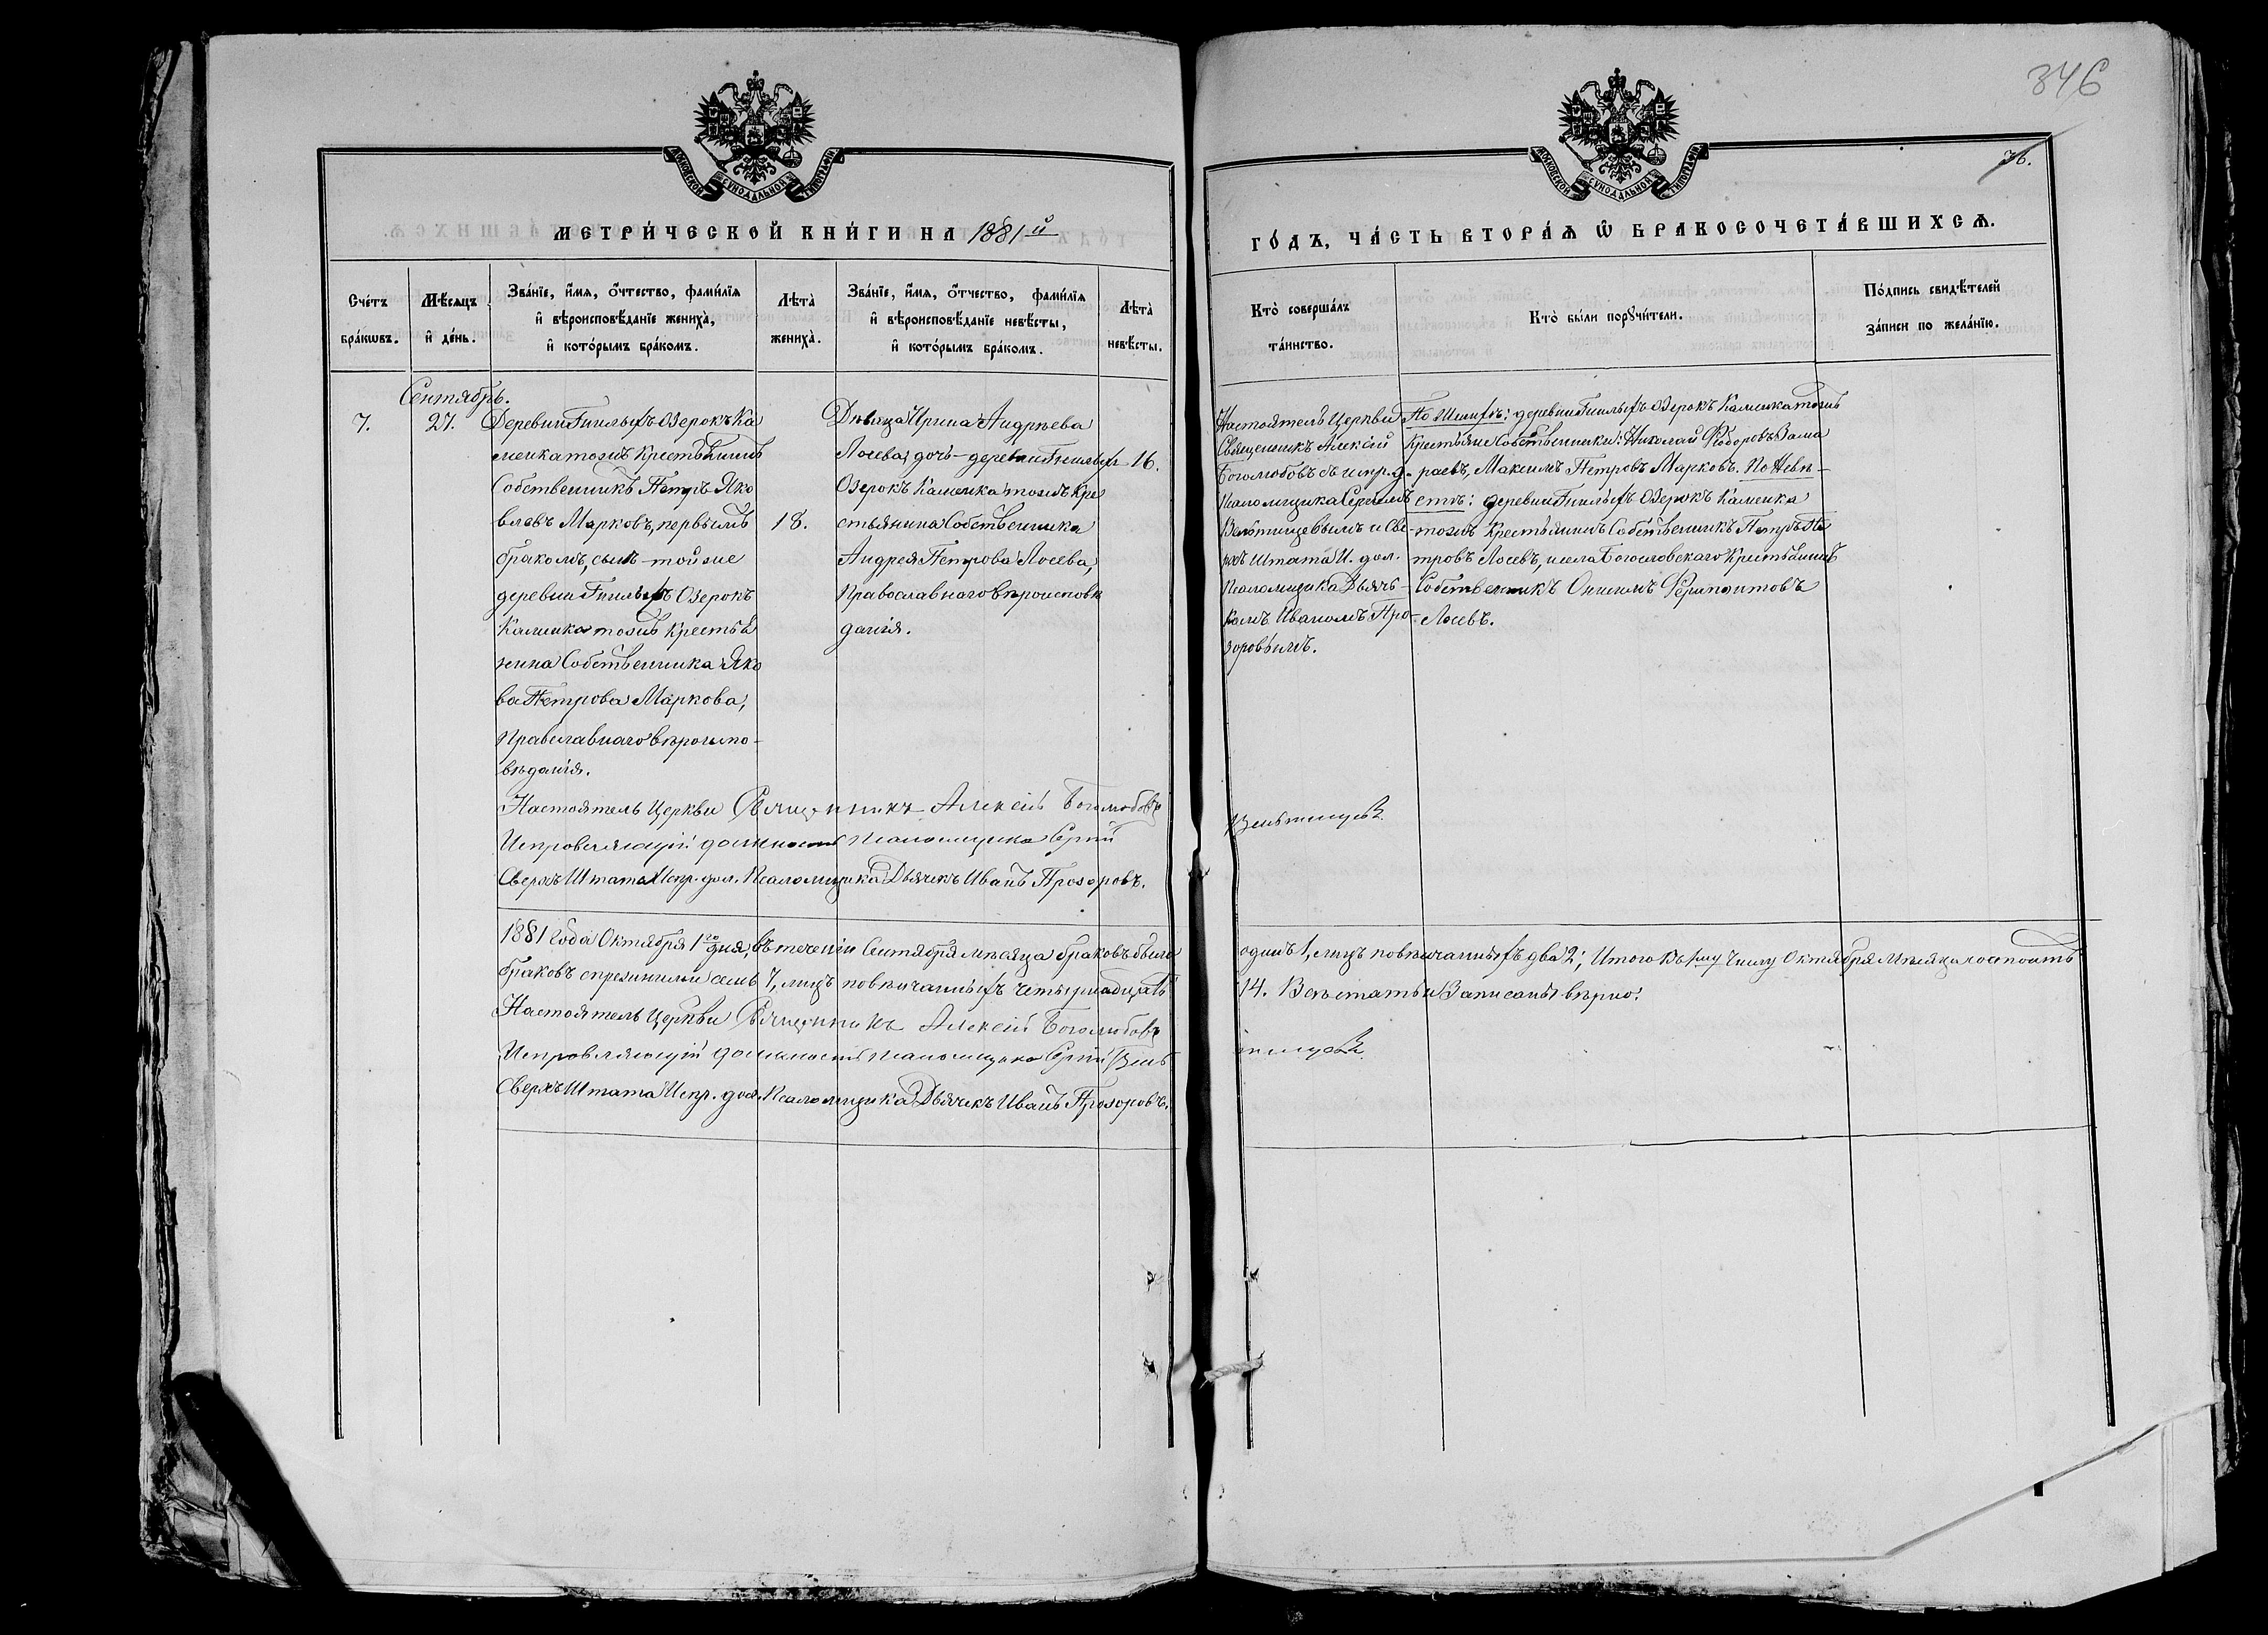 346
76.
МЕТРИ́ЧЕСКОЙ КНИ́ГИ НА 1881й
ГО́ДЪ, ЧА́СТЬ ВТОРА́Ѧ Ѡ БРАКОСОЧЕТА́ВШИХСѦ.
МОСКОВСКОЙ СУНОДАЛЬНОЙ ТИПОГРАФІИ
МОСКОВСКОЙ СУНОДАЛЬНОЙ ТИПОГРАФІИ
Сче́тъ бра́кѡвъ.
Мѣ́сяцъ и҆ де́нь.
Зва́нїе, и҆́мя, о҆́тчество, фами́лїя
и҆ вѣроисповѣ́данїе жениха̀,
и҆ кото́рымъ бра́комъ.
Лѣта̀ жениха̀.
Зва́нїе, и҆́мя, о҆́тчество, фами́лїя
и҆ вѣроисповѣ́данїе невѣ́сты,
и҆ кото́рымъ бра́комъ.
Лѣта̀ невѣ́сты.
Кто̀ соверша́лъ
та́инство.
Кто̀ бы́ли порꙋчи́тели.
По́дпись свидѣ́телей
за́писи по жела́нїю.
Сентябрь.
7.
27.
Деревни Гнилыхъ Озерокъ Ка
менка тожъ Крестьянинъ
Собственникъ Петръ Яко
влевъ Марковъ, первымъ
бракомъ, сынъ – той же
деревни Гнилыхъ Озерокъ
Каменка тожъ Крестья
нина Собственника Яко
ва Петрова Маркова,
Православнаго вѣроиспо-
вѣданія.
18.
Дѣвица Ирина Андрѣева
Лосева, дочь – деревни Гнилыхъ
Озерокъ Каменка тожъ Кре
стьянина Собственника
Андрея Петрова Лосева,
Православнаго вѣроисповѣ
данія.
16.
Настоятель Церкви
Священникъ Алексій
Боголюбовъ съ испр. д.
Псаломщика Сергіемъ
Вельтищевымъ и Све-
рхъ Штата И. дол.
Псаломщика Дьячь-
комъ Иваномъ Про-
зоровымъ.
По Женихѣ: деревни Гнилыхъ Озерокъ Каменка тожъ
Крестьяне Собственники: Николай Ѳедоровъ Зама
раевъ, Максимъ Петровъ Марковъ. По Невѣ-
стѣ: деревни Гнилыхъ Озерокъ Каменка
тожъ Крестьянинъ Собственникъ Петръ Пе
тровъ Лосевъ, и села Богословскаго Крестьянинъ
Собственникъ Онисимъ Ферапонтовъ
Лосевъ.
Настоятель Церкви Священникъ Алексій Боголюбовъ
Исправляющій должность Псаломщика Сергій Вельтищевъ
Сверхъ Штата Испр. дол. Псаломщика Дьячекъ Иванъ Прозоровъ.
1881 года Октября 1го дня, въ теченіи Сентября мѣсяца браковъ было одинъ 1, лицъ повѣнчанныхъ два 2; Итого Къ 1му Числу Октября Мѣсяца состоитъ
браковъ съ прежними семь 7, лицъ повѣнчанныхъ четырнадцать 14. Всѣ статьи Записаны вѣрно.
Настоятель Церкви Священникъ Алексій Боголюбовъ
Исправляющій должность Псаломщика Сергій Вельтищевъ
Сверхъ Штата Испр. дол. Псаломщика Дьячекъ Иванъ Прозоровъ.